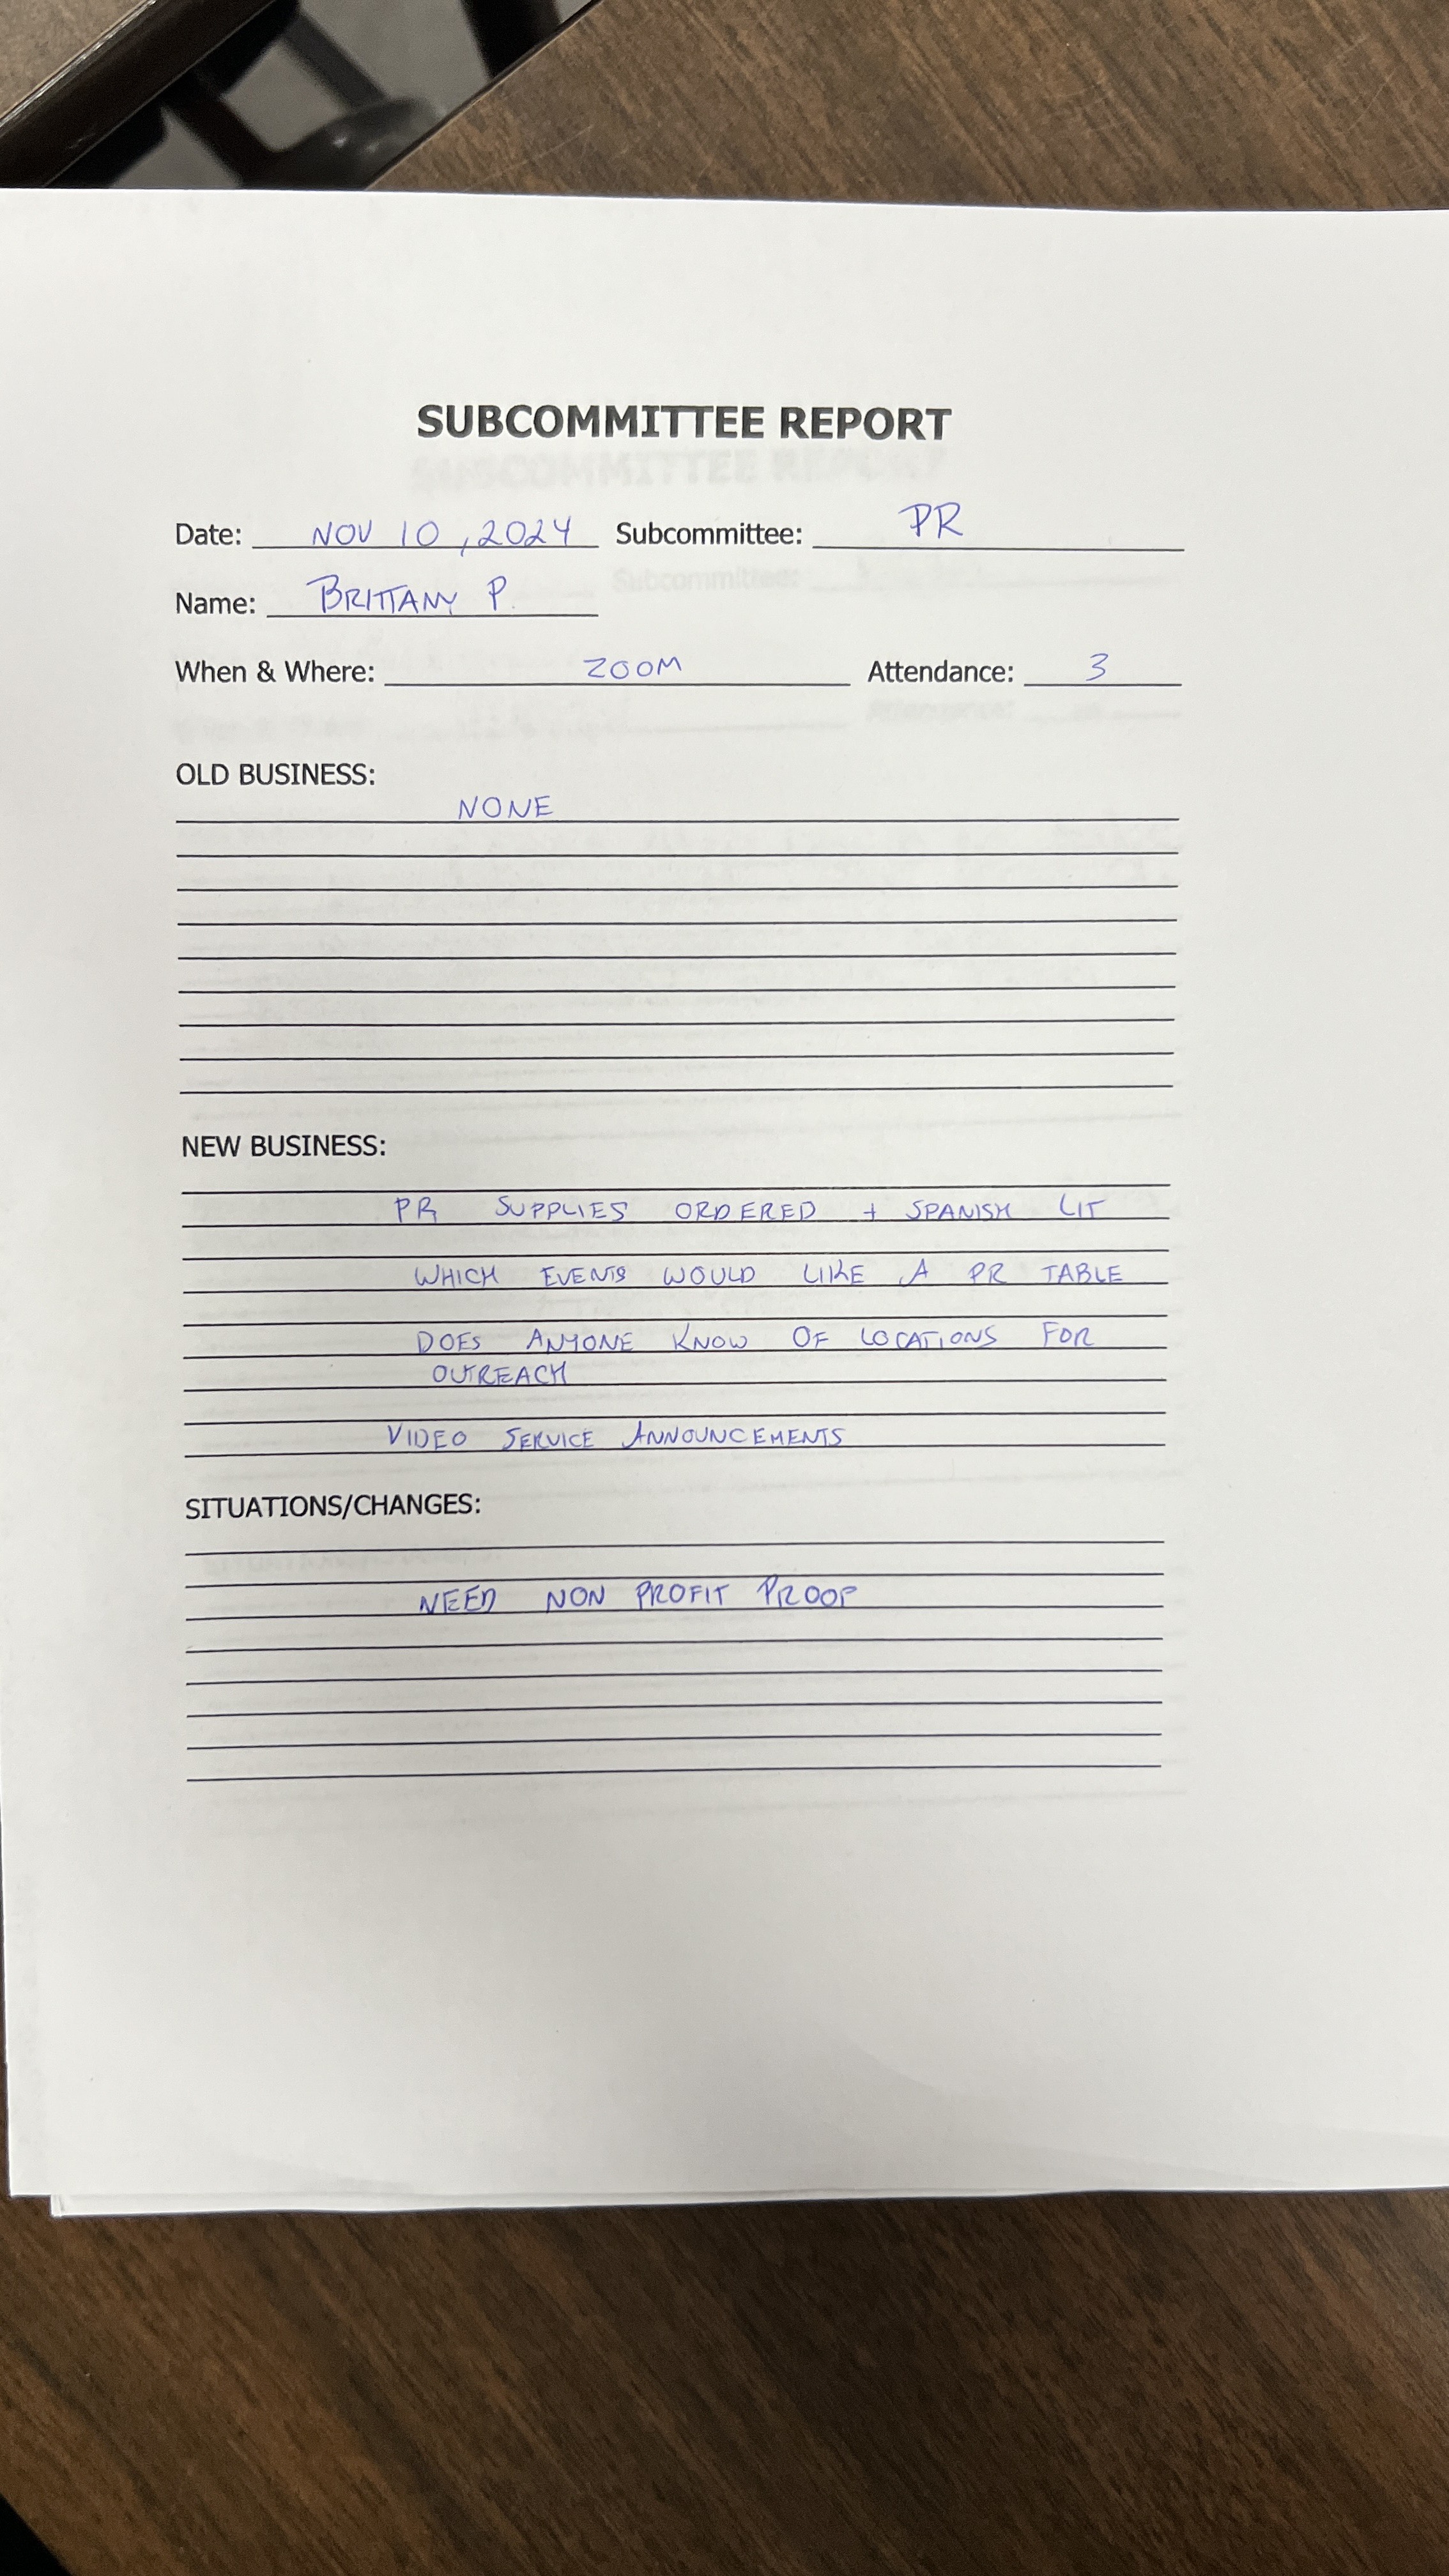 SUBCOMMITTEE REPORT
Date: NOV 10, 2024 Subcommittee: PR
Name: BRITTANY P.
When & Where: ZOOM Attendance: 3
OLD BUSINESS:
NONE
NEW BUSINESS:
PR SUPPLIES ORDERED + SPANISH LIT
WHICH EVENTS WOULD LIKE A PR TABLE
DOES ANYONE KNOW OF LOCATIONS FOR
OUTREACH
VIDEO SERVICE ANNOUNCEMENTS
SITUATIONS/CHANGES:
NEED NON PROFIT PROOF